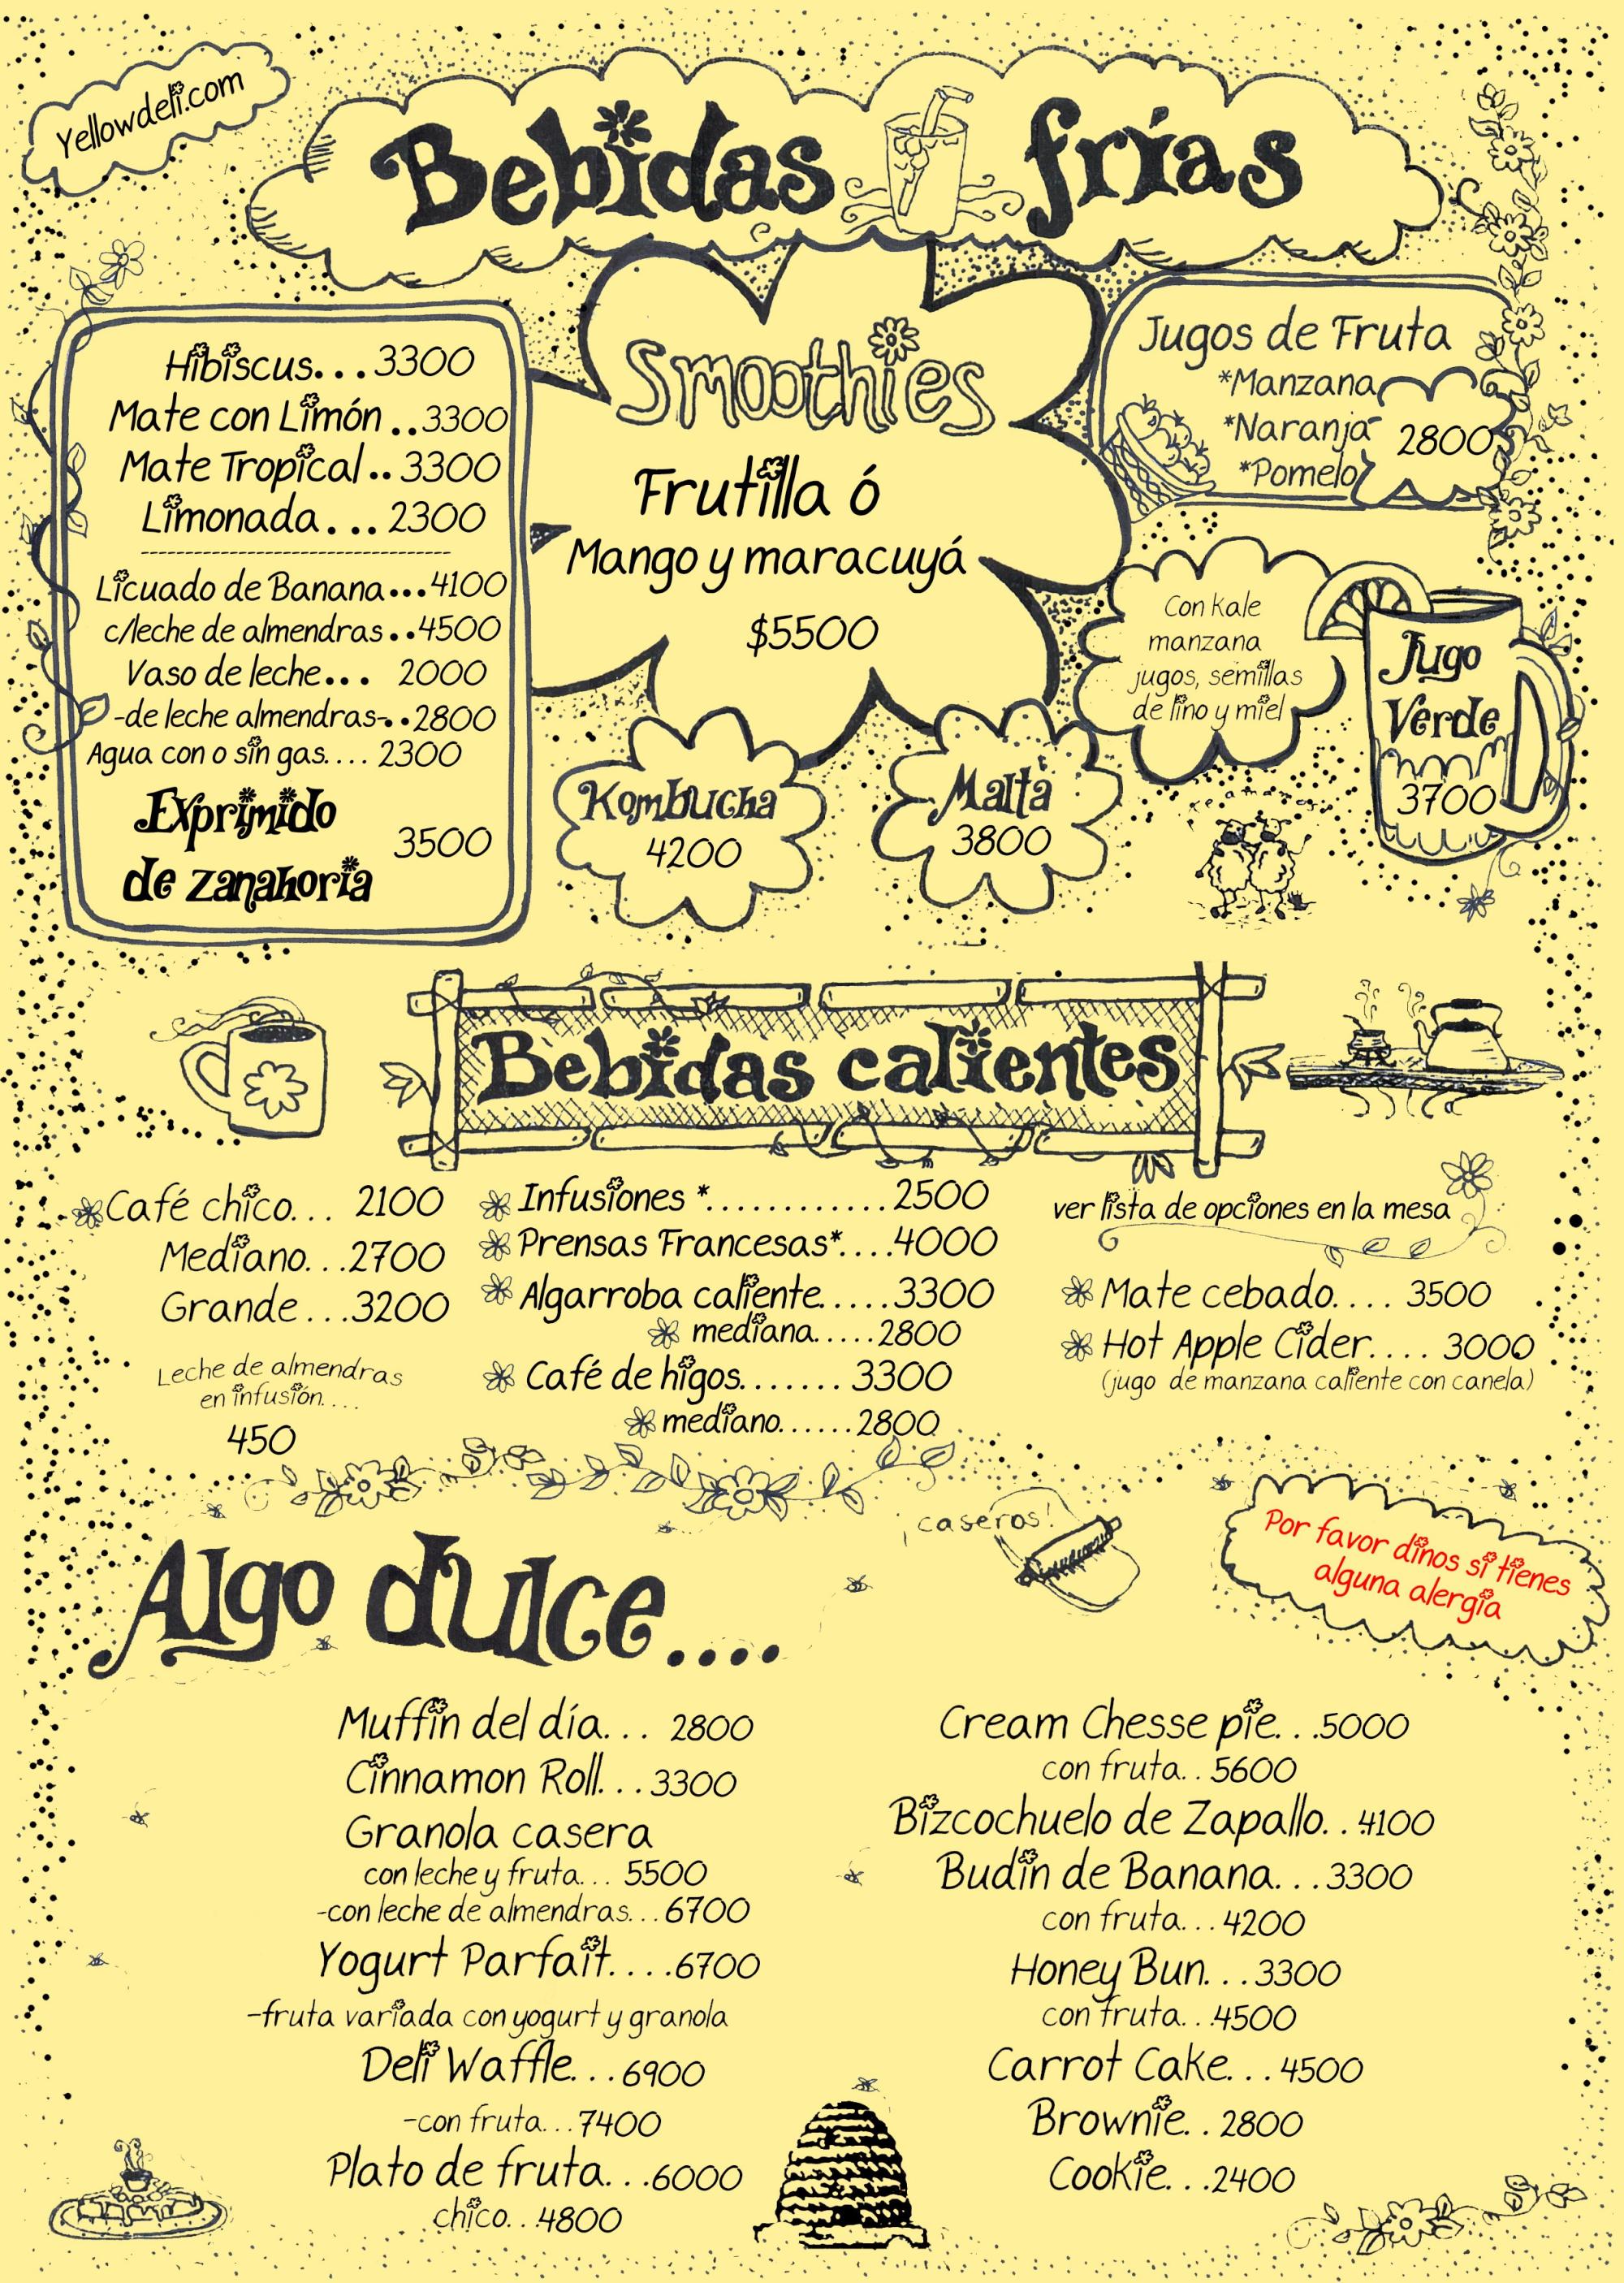 Yellowdeli.com
Bebidas frías
Hibiscus...3300
Mate con Limón ..3300
Mate Tropical.. 3300
Limonada... 2300
-----------------------------------
Licuado de Banana...4100
c/leche de almendras..4500
Vaso de leche... 2000
-de leche almendras-..2800
Agua con o sin gas.... 2300
Exprimido
de zanahoria
3500
Smoothies
Frutilla ó
Mango y maracuyá
$5500
Jugos de Fruta
*Manzana
*Naranja
*Pomelo
2800
Con kale
manzana
jugos, semillas
de lino y miel
Jugo
Verde
3700
Kombucha
4200
Malta
3800
Bebidas calientes
Café chico... 2100
Mediano...2700
Grande...3200
Leche de almendras
en infusión....
450
Infusiones *.............2500
Prensas Francesas*....4000
Algarroba caliente.....3300
mediana.....2800
Café de higos.......3300
mediano......2800
ver lista de opciones en la mesa
Mate cebado.... 3500
Hot Apple Cider.... 3000
(jugo de manzana caliente con canela)
¡caseros!
Por favor dinos si tienes
alguna alergia
Algo dulce....
Muffin del día... 2800
Cinnamon Roll...3300
Granola casera
con leche y fruta... 5500
-con leche de almendras...6700
Yogurt Parfait....6700
-fruta variada con yogurt y granola
Deli Waffle...6900
-con fruta...7400
Plato de fruta...6000
chico..4800
Cream Chesse pie...5000
con fruta..5600
Bizcochuelo de Zapallo..4100
Budin de Banana...3300
con fruta...4200
Honey Bun...3300
con fruta...4500
Carrot Cake...4500
Brownie..2800
Cookie...2400